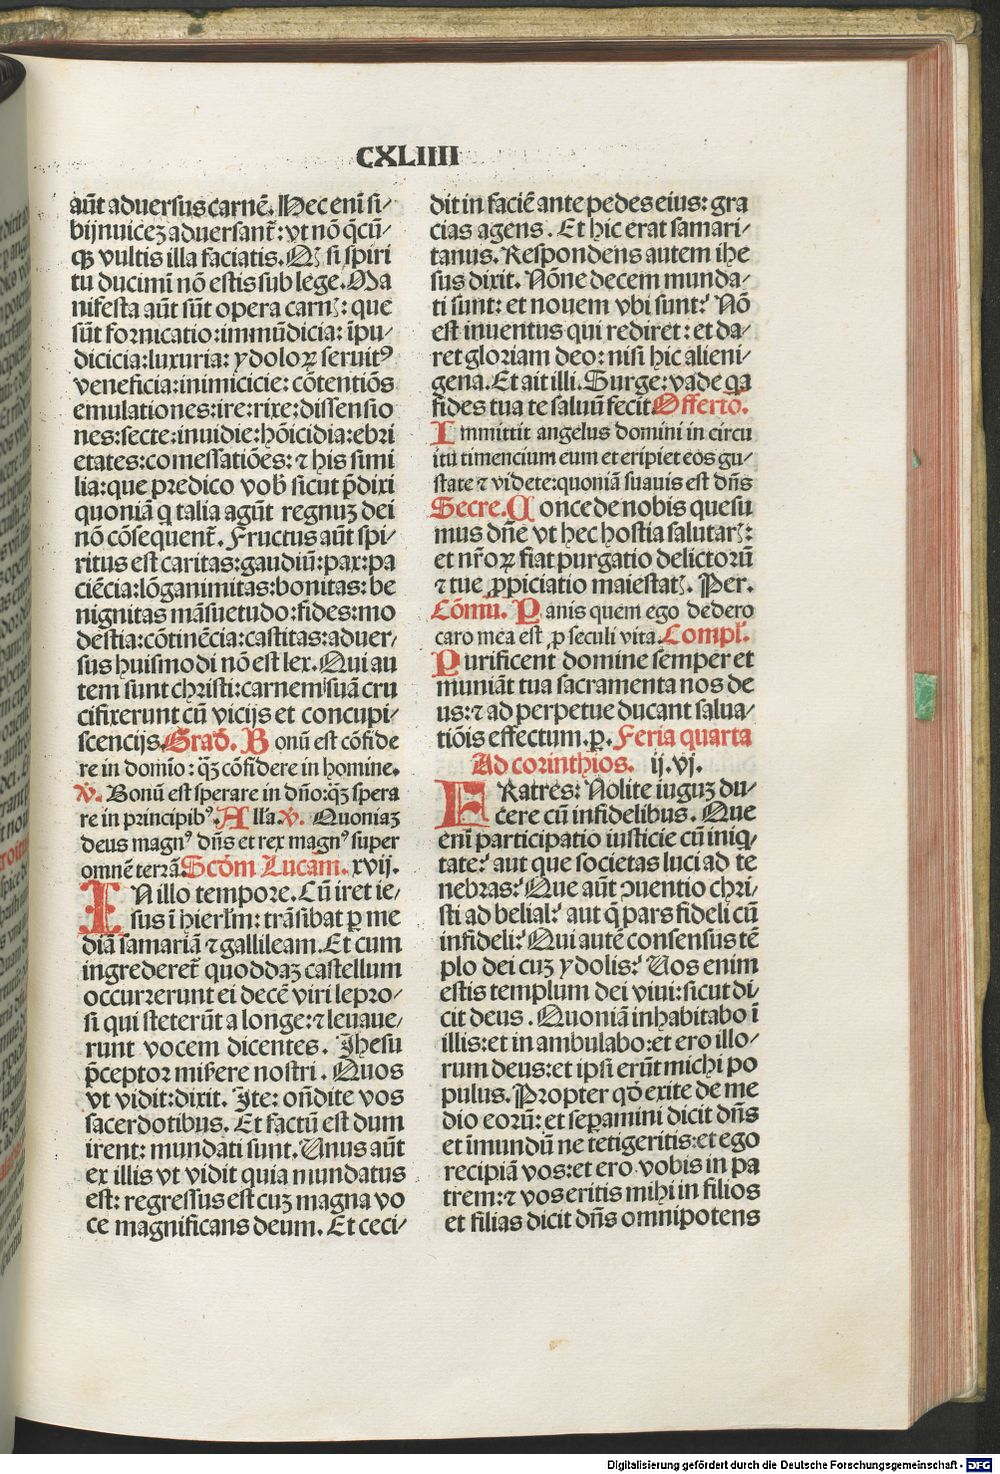 CXLIIII
aūt aduersus carnē. Hec enī si⸗
bijnuiceʒ aduersant᷑: vt nō q̄cū⸗
qꝫ vultis illa faciatis. Qꝭ si spiri
tu ducimī nō estis sub lege. Ma
nifesta aūt sūt opera carnꝭ: que
sūt fornicatio: immūdicia: īpu⸗
dicicia: luxuria: ydoloꝝ seruitꝰ
veneficia: inimicicie: cōtentiōs
emulationes: ire: rixe: dissensio
nes: secte: inuidie: hōicidia: ebri
etates: comessatiōes: ⁊ his simi
lia: que predico vob̄ sicut p̄dixi
quoniā q talia agūt regnuʒ dei
nō cōsequent᷑. Fructus aūt spi⸗
ritus est caritas: gaudiū: pax: pa
ciēcia: lōganimitas: bonitas: be
nignitas māsuetudo: fides: mo
destia: cōtinēcia: castitas: aduer⸗
sus huismodi nō est lex. Qui au
tem sunt christi: carnem suā cru
cifixerunt cū vicijs et concupi⸗
scencijs. Grad̄. Bonū est cōfide
re in domīo: qʒ̄ cōfidere in homine.
V̄. Bonū est sperare in dn̄o: qʒ̄ spera
re in principibꝰ. Alla. V̄. Quoniaʒ
deus magnꝰ dn̄s et rex magnꝰ super
omnē terrā. Scd̄m Lucam̄. xvij.
IN illo tempore. Cū iret ie⸗
sus ī hierl̄m: trāsibat ꝑ me
diā samariā ⁊ gallileam. Et cum
ingrederet᷑ quoddaʒ castellum
occurrerunt ei decē viri lepro⸗
si qui steterūt a longe: ⁊ leuaue⸗
runt vocem dicentes. Jhesu
p̄ceptor miẜere nostri. Quos
vt vidit: dixit. Jte: ondīte vos
sacerdotibus. Et factū est dum
irent: mundati sunt. Unus aūt
ex illis vt vidit quia mundatus
est: regressus est cuʒ magna vo
ce magnificans deum. Et ceci⸗
dit in faciē ante pedes eius: gra
cias agens. Et hic erat samari⸗
tanus. Respondens autem ihe
sus dixit. Nōne decem munda⸗
ti sunt: et nouem vbi sunt? Nō
est inuentus qui rediret: et da⸗
ret gloriam deo: nisi hic alieni⸗
gena. Et ait illi. Surge: vade qa
fides tua te saluū fecit. Offerto᷒.
Immittit angelus domini in circu
itu timencium eum et eripiet eos gu⸗
state ⁊ videte: quoniā suauis est dn̄s
Secre. Concede nobis quesu
mus dn̄e vt hec hostia salutarꝭ:
et nr̄oꝝ fiat purgatio delictorū
⁊ tue ꝓpiciatio maiestatꝭ. Per.
Cōmu. Panis quem ego dedero
caro mea est ꝓ seculi vita. Compl̄.
Purificent domine semper et
muniāt tua sacramenta nos de
us: ⁊ ad perpetue ducant salua⸗
tiōis effectum. p. Feria quarta
Ad corinthios. ij. vj.
FRatres: Nolite iuguʒ du⸗
cere cū infidelibus. Que
enī participatio iusticie cū iniq⸗
tate? aut que societas luci ad te
nebras? Que aūt ɔuentio chri⸗
sti ad belial? aut q̄ pars fideli cū
infideli? Qui autē consensus tē
plo dei cuʒ ydolis? Uos enim
estis templum dei viui: sicut di⸗
cit deus. Quoniā inhabitabo ī
illis: et in ambulabo: et ero illo⸗
rum deus: et ipsi erūt michi po
pulus. Propter qd̄ exite de me
dio eorū: et sepamini dicit dn̄s
et īmundū ne tetigeritis: et ego
recipiā vos: et ero vobis in pa
trem: ⁊ vos eritis mihi in filios
et filias dicit dn̄s omnipotens
Digitalisierung gefördert durch die Deutsche Forschungsgemeinschaft - DFG